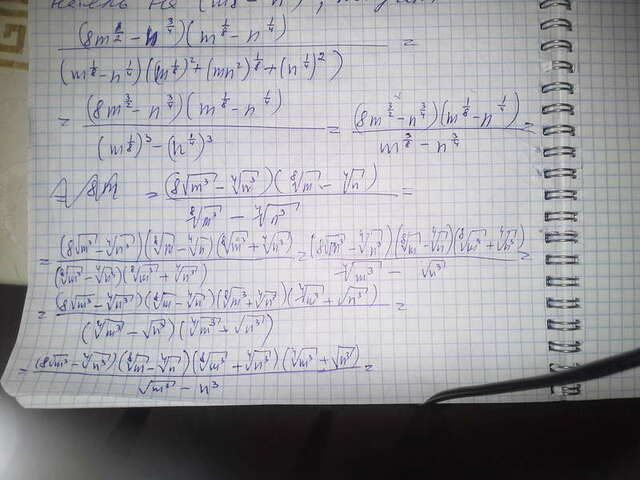 (8m^{3/2} - n^{3/4})(m^{1/8} - n^{1/4}) =
(m^{1/8} - n^{1/4})((m^{1/8})^2 + (mn^2)^{1/8} + (n^{1/4})^2)
= (8m^{3/2} - n^{3/4})(m^{1/8} - n^{1/4}) = (8m^{3/2} - n^{3/4})(m^{1/8} - n^{1/4}) =
(m^{1/8})^3 - (n^{1/4})^3 m^{3/8} - n^{3/4}
= (8√m³ - ⁴√n³)(⁸√m - ⁴√n) =
⁸√m³ - ⁴√n³
= (8√m³ - ⁴√n³)(⁸√m - ⁴√n)(⁸√m³ + ⁴√n³) = (8√m³ - ⁴√n³)(⁸√m - ⁴√n)(⁸√m³ + ⁴√n³) =
(⁸√m³ - ⁴√n³)(⁸√m³ + ⁴√n³) ⁴√m³ - √n³
= (8√m³ - ⁴√n³)(⁸√m - ⁴√n)(⁸√m³ + ⁴√n³)(⁴√m³ + √n³) =
(⁴√m³ - √n³)(⁴√m³ + √n³)
= (8√m³ - ⁴√n³)(⁸√m - ⁴√n)(⁸√m³ + ⁴√n³)(⁴√m³ + √n³) =
√m³ - n³